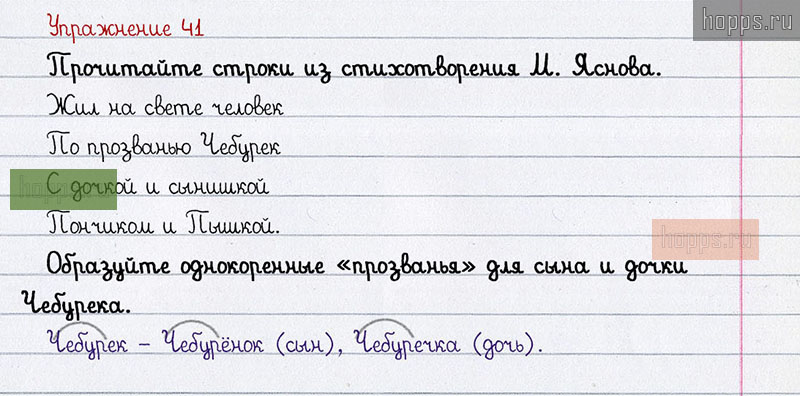 hopps.ru
Упражнение 41
Прочитайте строки из стихотворения М. Яснова.
Жил на свете человек
По прозванью Чебурек
С дочкой и сынишкой
Пончиком и Пышкой.
hopps.ru
Образуйте однокоренные «прозванья» для сына и дочки
Чебурека.
Чебурек – Чебурёнок (сын), Чебуречка (дочь).